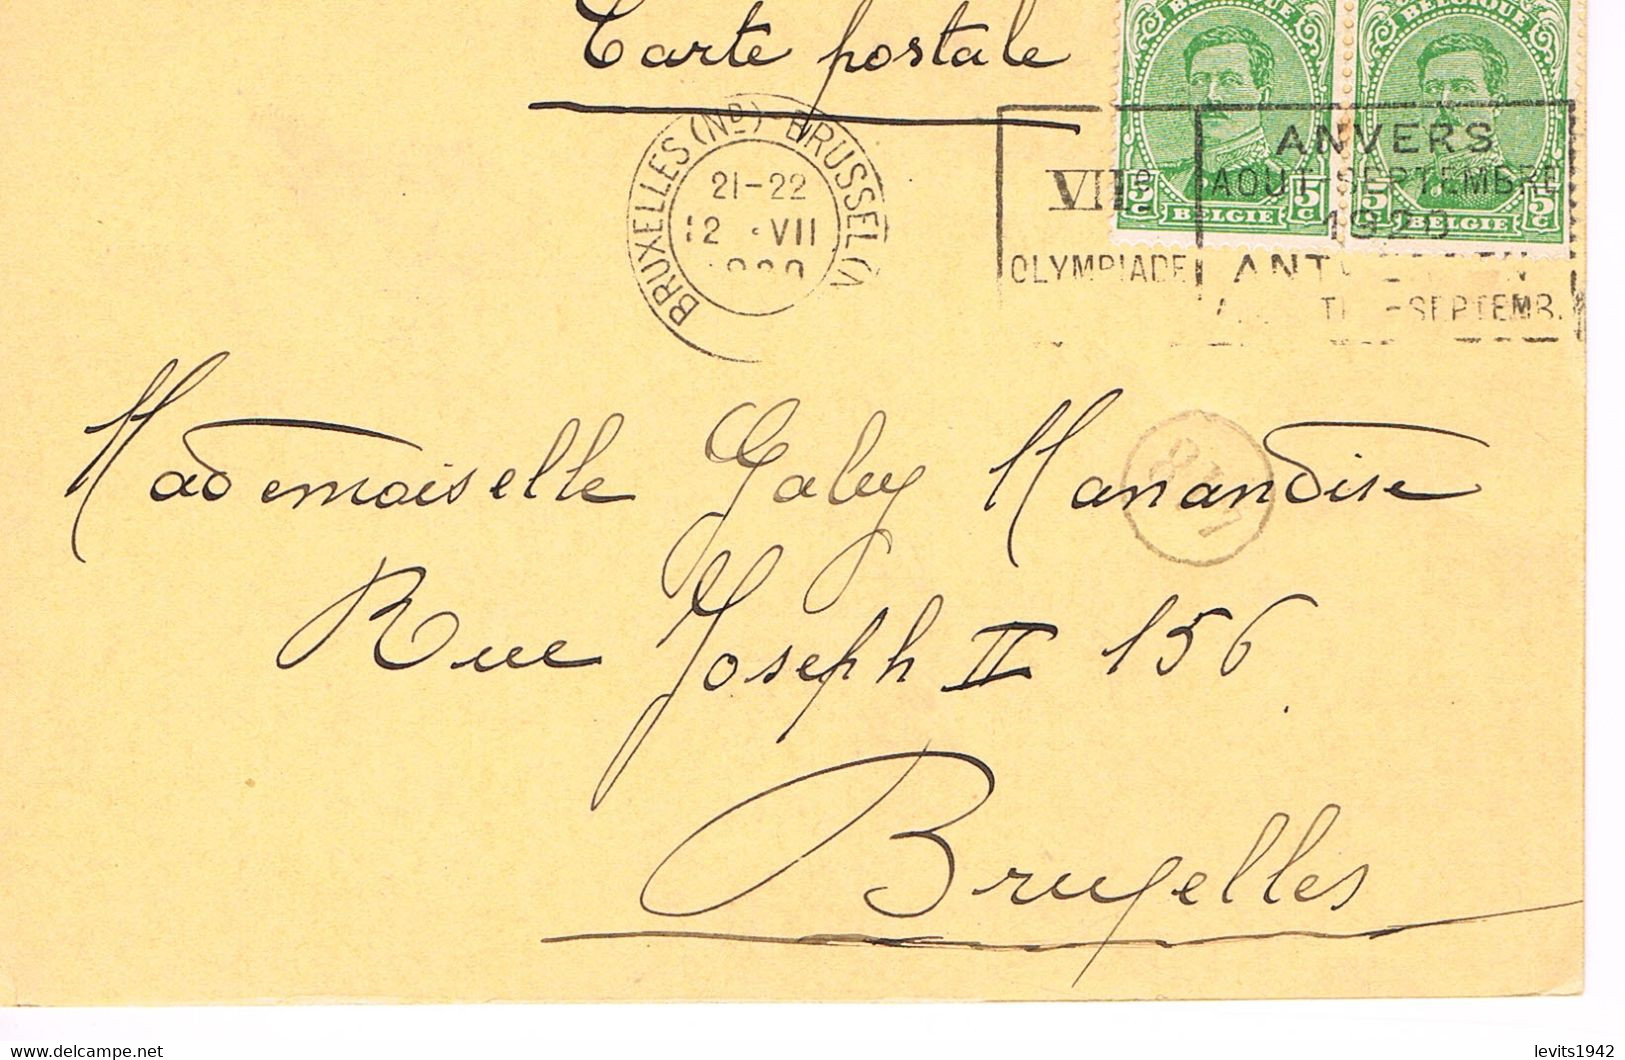 Carte postale
BELGIQUE BELGIQUE
5c BELGIE 5c 5c BELGIE 5c
BRUXELLES (ND) BRUSSEL (N
21-22
12 · VII
VIIe
OLYMPIADE
ANVERS
AOUT-SEPTEMBRE
1920
-SEPTEMB.
Mademoiselle Gaby Manandise
Rue Joseph II 156
Bruxelles
levits1942